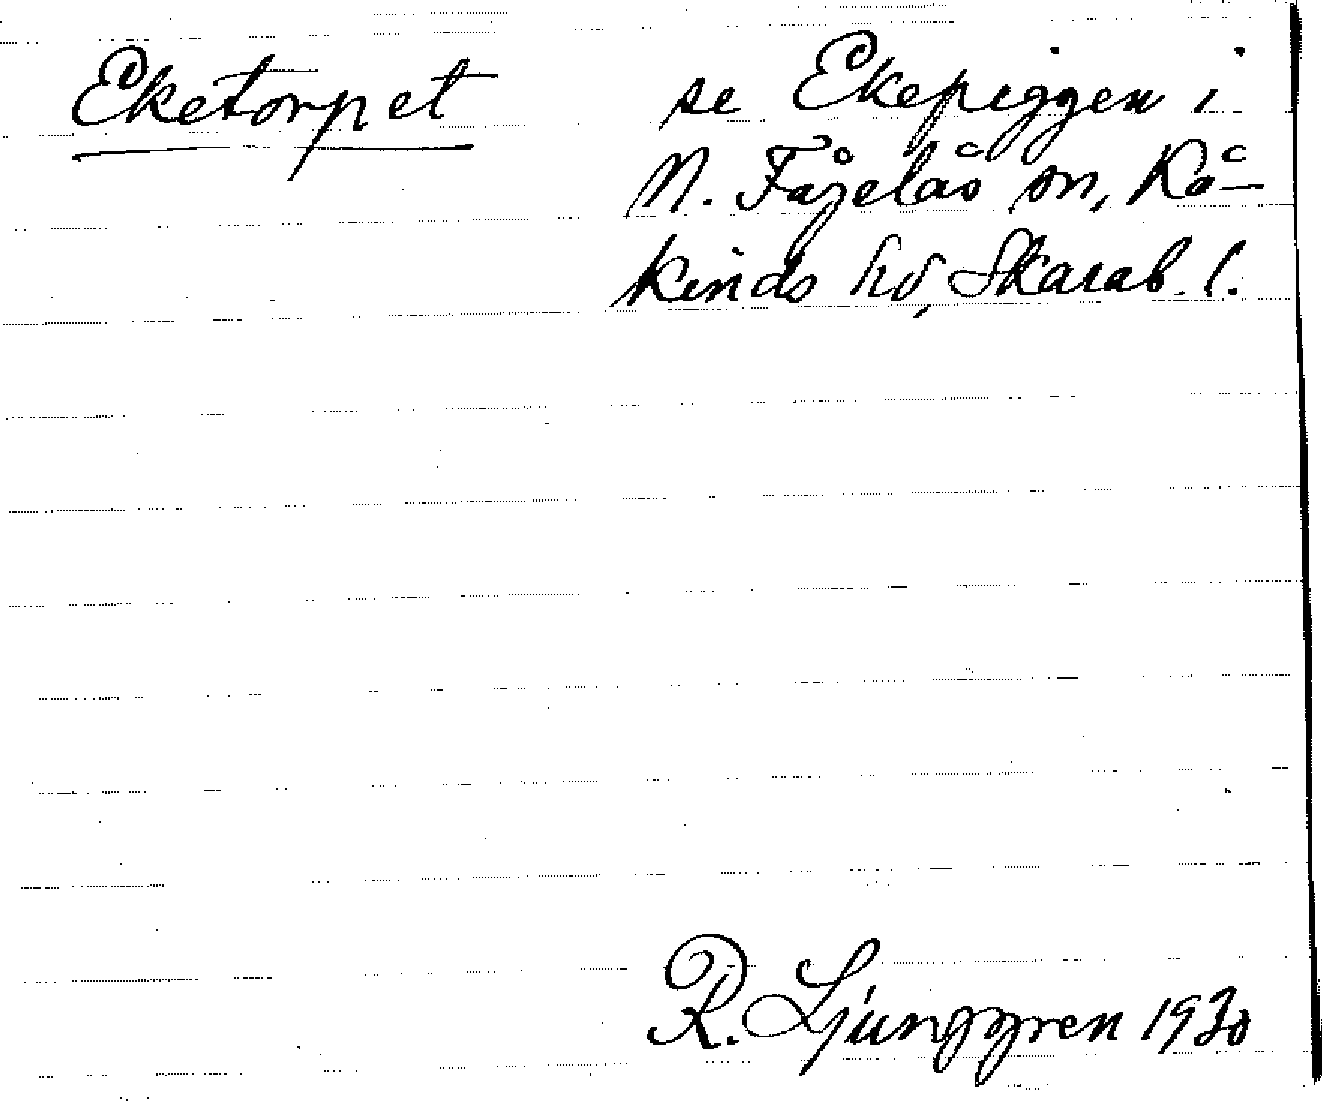 Eketorpet se Ekepiggen i
N. Fågelås sn, Kå-
kinds hd, Skarab. l.
R. Ljunggren 1930